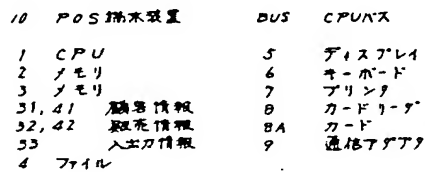 10 POS端末装置
1 CPU
2 メモリ
3 メモリ
31, 41 顧客情報
32, 42 販売情報
33 入出力情報
4 ファイル
BUS CPUバス
5 ディスプレイ
6 キーボード
7 プリンタ
8 カードリーダ
8A カード
9 通信アダプタ